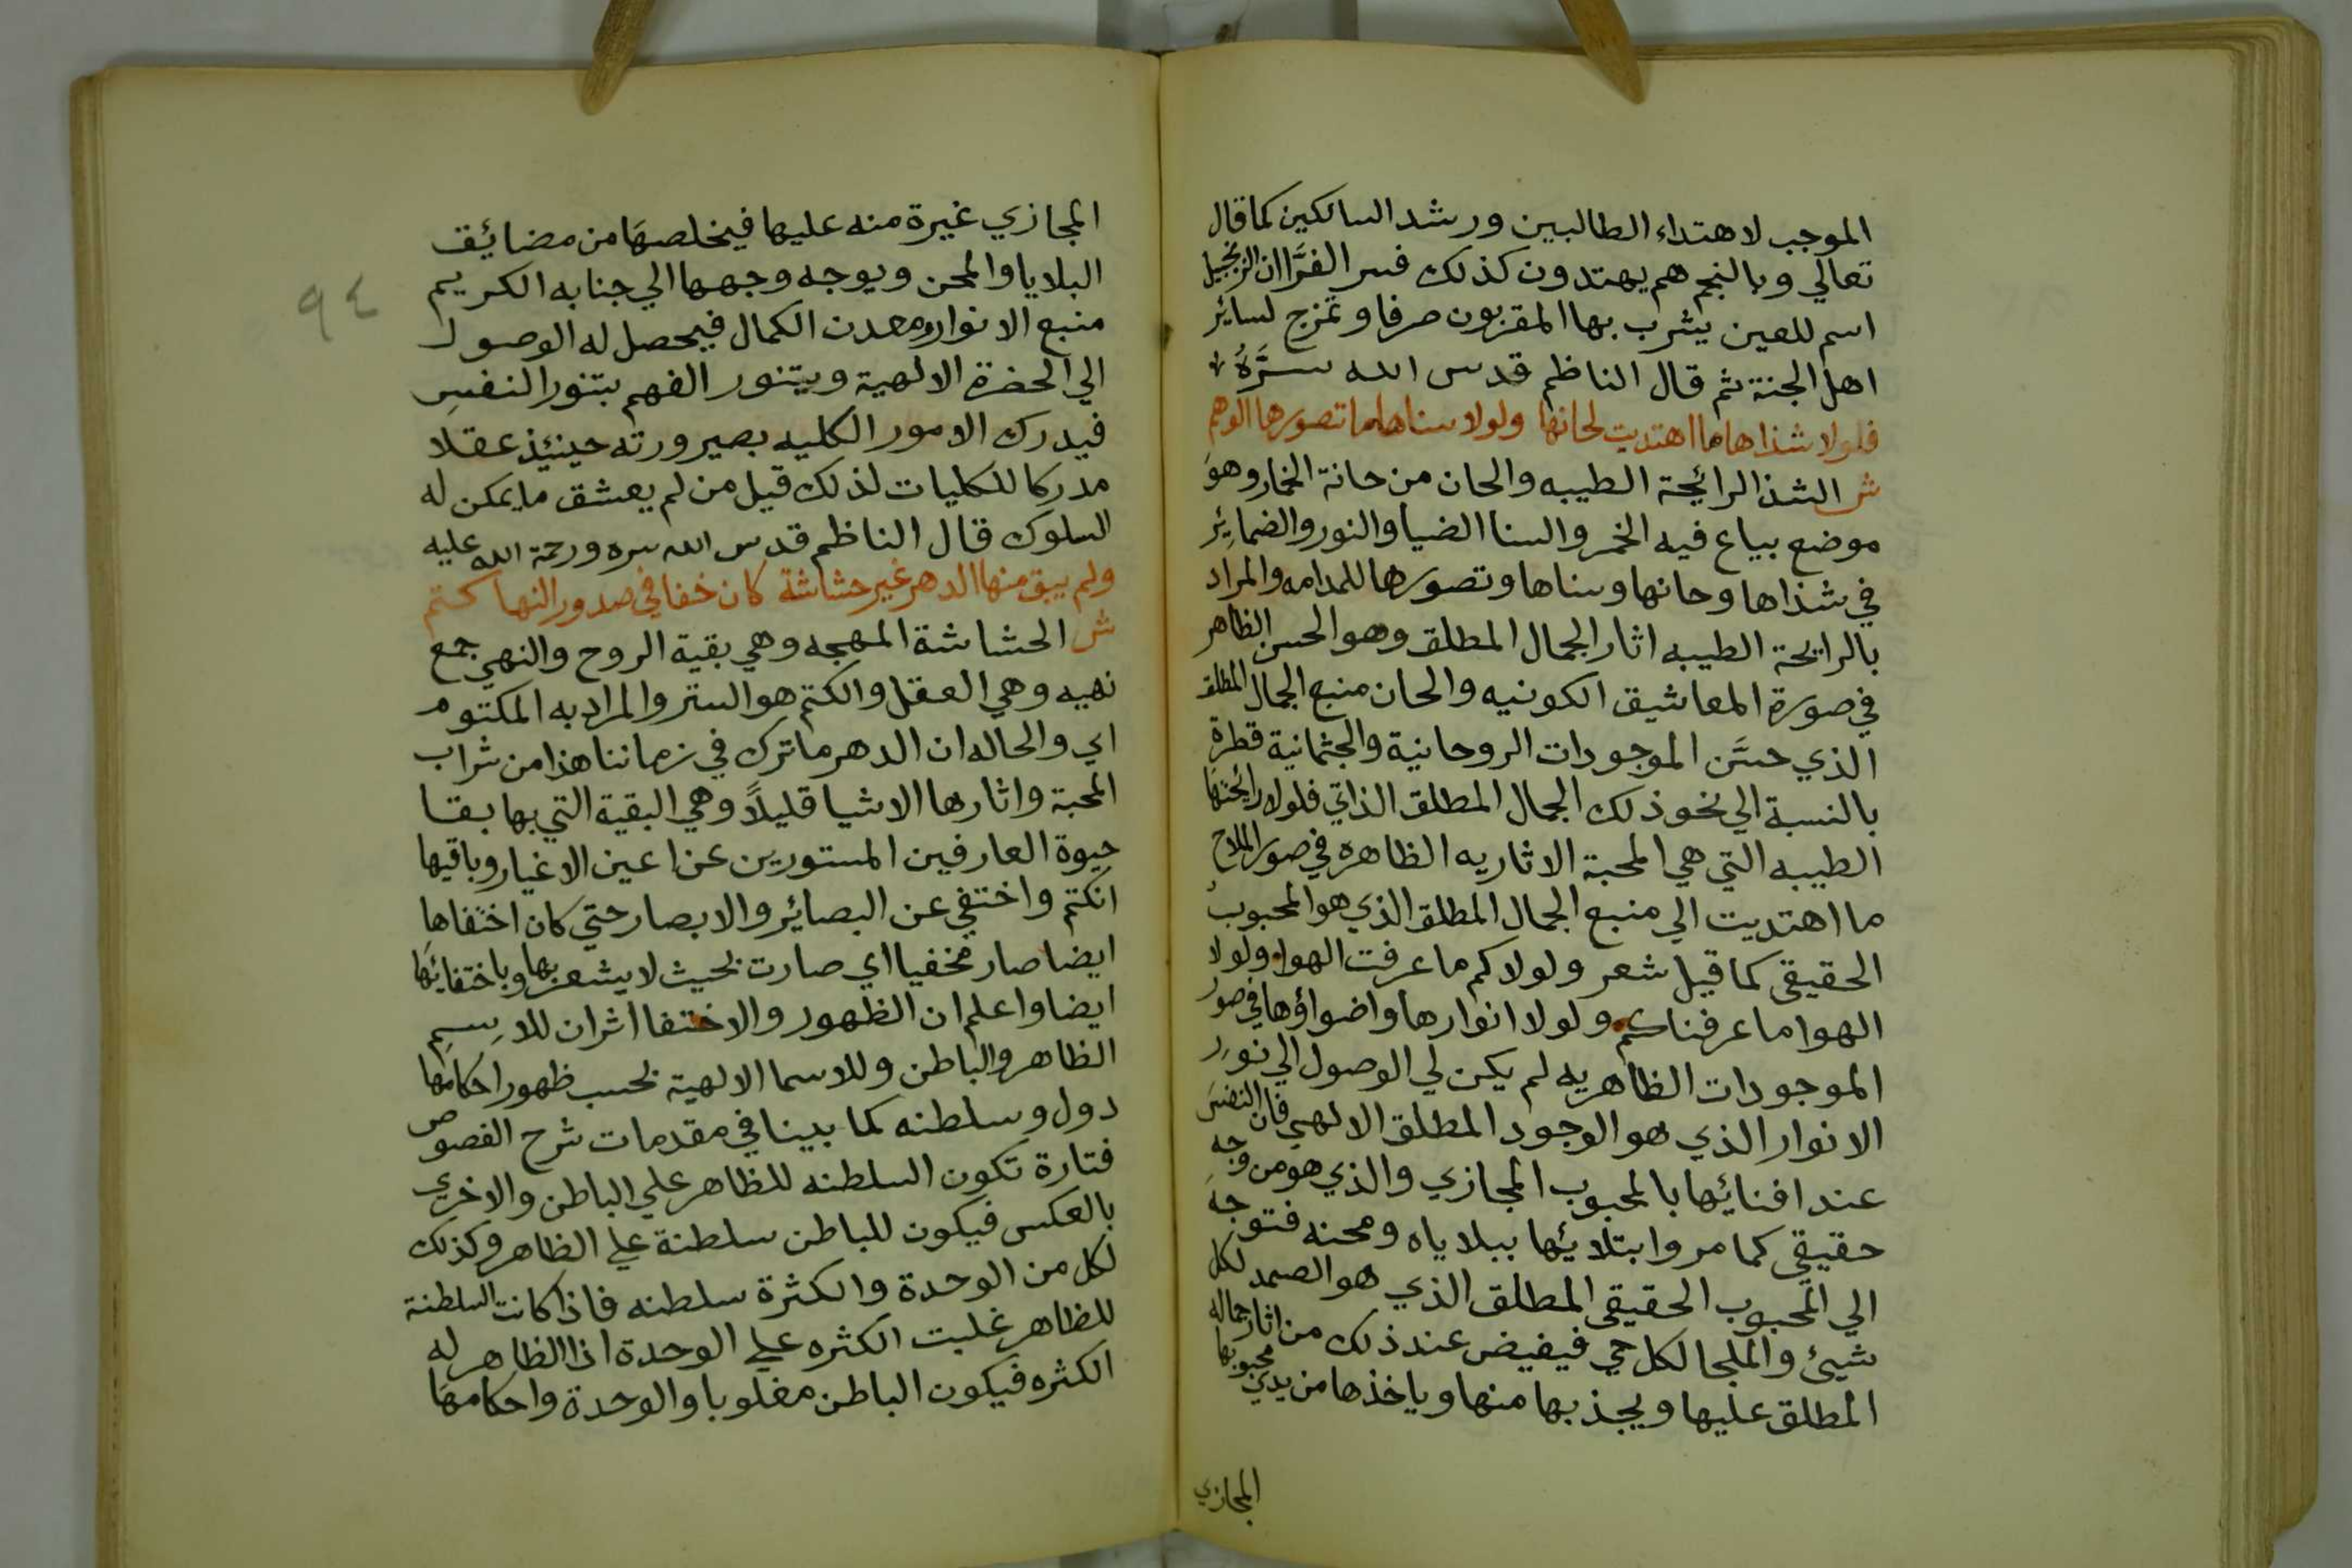 الموجب لاهتداء الطالبين ورشد السالكين كما قال
تعالي وبالنجم هم يهتدون كذلك فسر الفرَّا ان الزنجبيل
اسم للعين يشرب بها المقربون صرفا وتمزج لسائر
اهل الجنة ثم قال الناظم قدس الله سرَّهُ
فلولا شذاها ما اهتديت لحانها ولولا سناها ما تصورها الوهم
ش الشذا الرائحة الطيبه والحان من حانة الخمار وهوَ
موضع يباع فيه الخمر والسنا الضيا والنور والضمائِر
في شذاها وحانها وسناها وتصورها للمدامه والمراد
بالرايحة الطيبه اثار الجمال المطلق وهو الحسن الظاهر
في صورة المعاشيق الكونيه والحان منبع الجمال المطلق
الذي حسَّن الموجودات الروحانية والجثمانية قطرة
بالنسبة الي نحو ذلك الجمال المطلق الذاتي فلولا رائحتها
الطيبه التي هي المحبة الاثاريه الظاهره في صور الملاح
ما اهتديت الي منبع الجمال المطلق الذي هو المحبوب
الحقيقي كما قيل شعر ولولاكم ما عرفت الهوا ولولا
الهوا ما عرفناكم ولولا انوارها واضواؤها في صور
الموجودات الظاهريه لم يكن لي الوصول الي نورِ
الانوار الذي هو الوجود المطلق الالهي فان النفسَ
عند افنائها بالمحبوب المجازي والذي هو من وجهِ
حقيقي كما مر وابتلائها ببلاياه ومحنه فتوجهَ
الي المحبوب الحقيقي المطلق الذي هو الصمد لكل
شيئ والملجا لكل حي فيفيض عند ذلك من اثار جماله
المطلق عليها ويجذبها منها وياخذها من يدي محبوبها
المجازي
المجازي غيرة منه عليها فيخلصهَا من مضائق
البلايا والمحن ويوجه وجهها الي جنابه الكريم
منبع الانوار ومعدن الكمال فيحصل له الوصول
الي الحضرة الالهية ويتنور الفهم بتنور النفسِ
فيدرك الامور الكليه بصيرورته حينئذ عقلا
مدركا للكليات لذلك قيل من لم يعشق ما يمكن له
السلوك قال الناظم قدس الله سره ورحمة الله عليه
ولم يبق منها الدهر غير حشاشة كان خفا في صدور النها كتم
ش الحشاشة المهجه وهي بقية الروح والنهي جمع
نهيه وهي العقل والكتم هو الستر والمراد به المكتوم
اي والحاله ان الدهر ما ترك في زماننا هذا من شراب
المحبة واثارها الاشيا قليلاً وهي البقية التي بها بقا
حيوة العارفين المستورين عن اعين الاغيار وباقيها
انكتم واختفي عن البصائر والابصار حتي كان اختفاها
ايضا صار مخفيا اي صارت بحيث لا يشعر بها وباختفائها
ايضا واعلم ان الظهور والاختفا اثران للاِسمِ
الظاهر والباطن وللاسما الالهية بحسب ظهور احكامها
دول وسلطنه كما بينا في مقدمات شرح الفصوص
فتارة تكون السلطنه للظاهر علي الباطن والاخري
بالعكس فيكون للباطن سلطنة علي الظاهر وكذلك
لكل من الوحدة والكثرة سلطنه فاذا كانت السلطنة
للظاهر غلبت الكثره علي الوحدة اذ الظاهر له
الكثره فيكون الباطن مغلوبا والوحدة واحكامهَا
٩٤